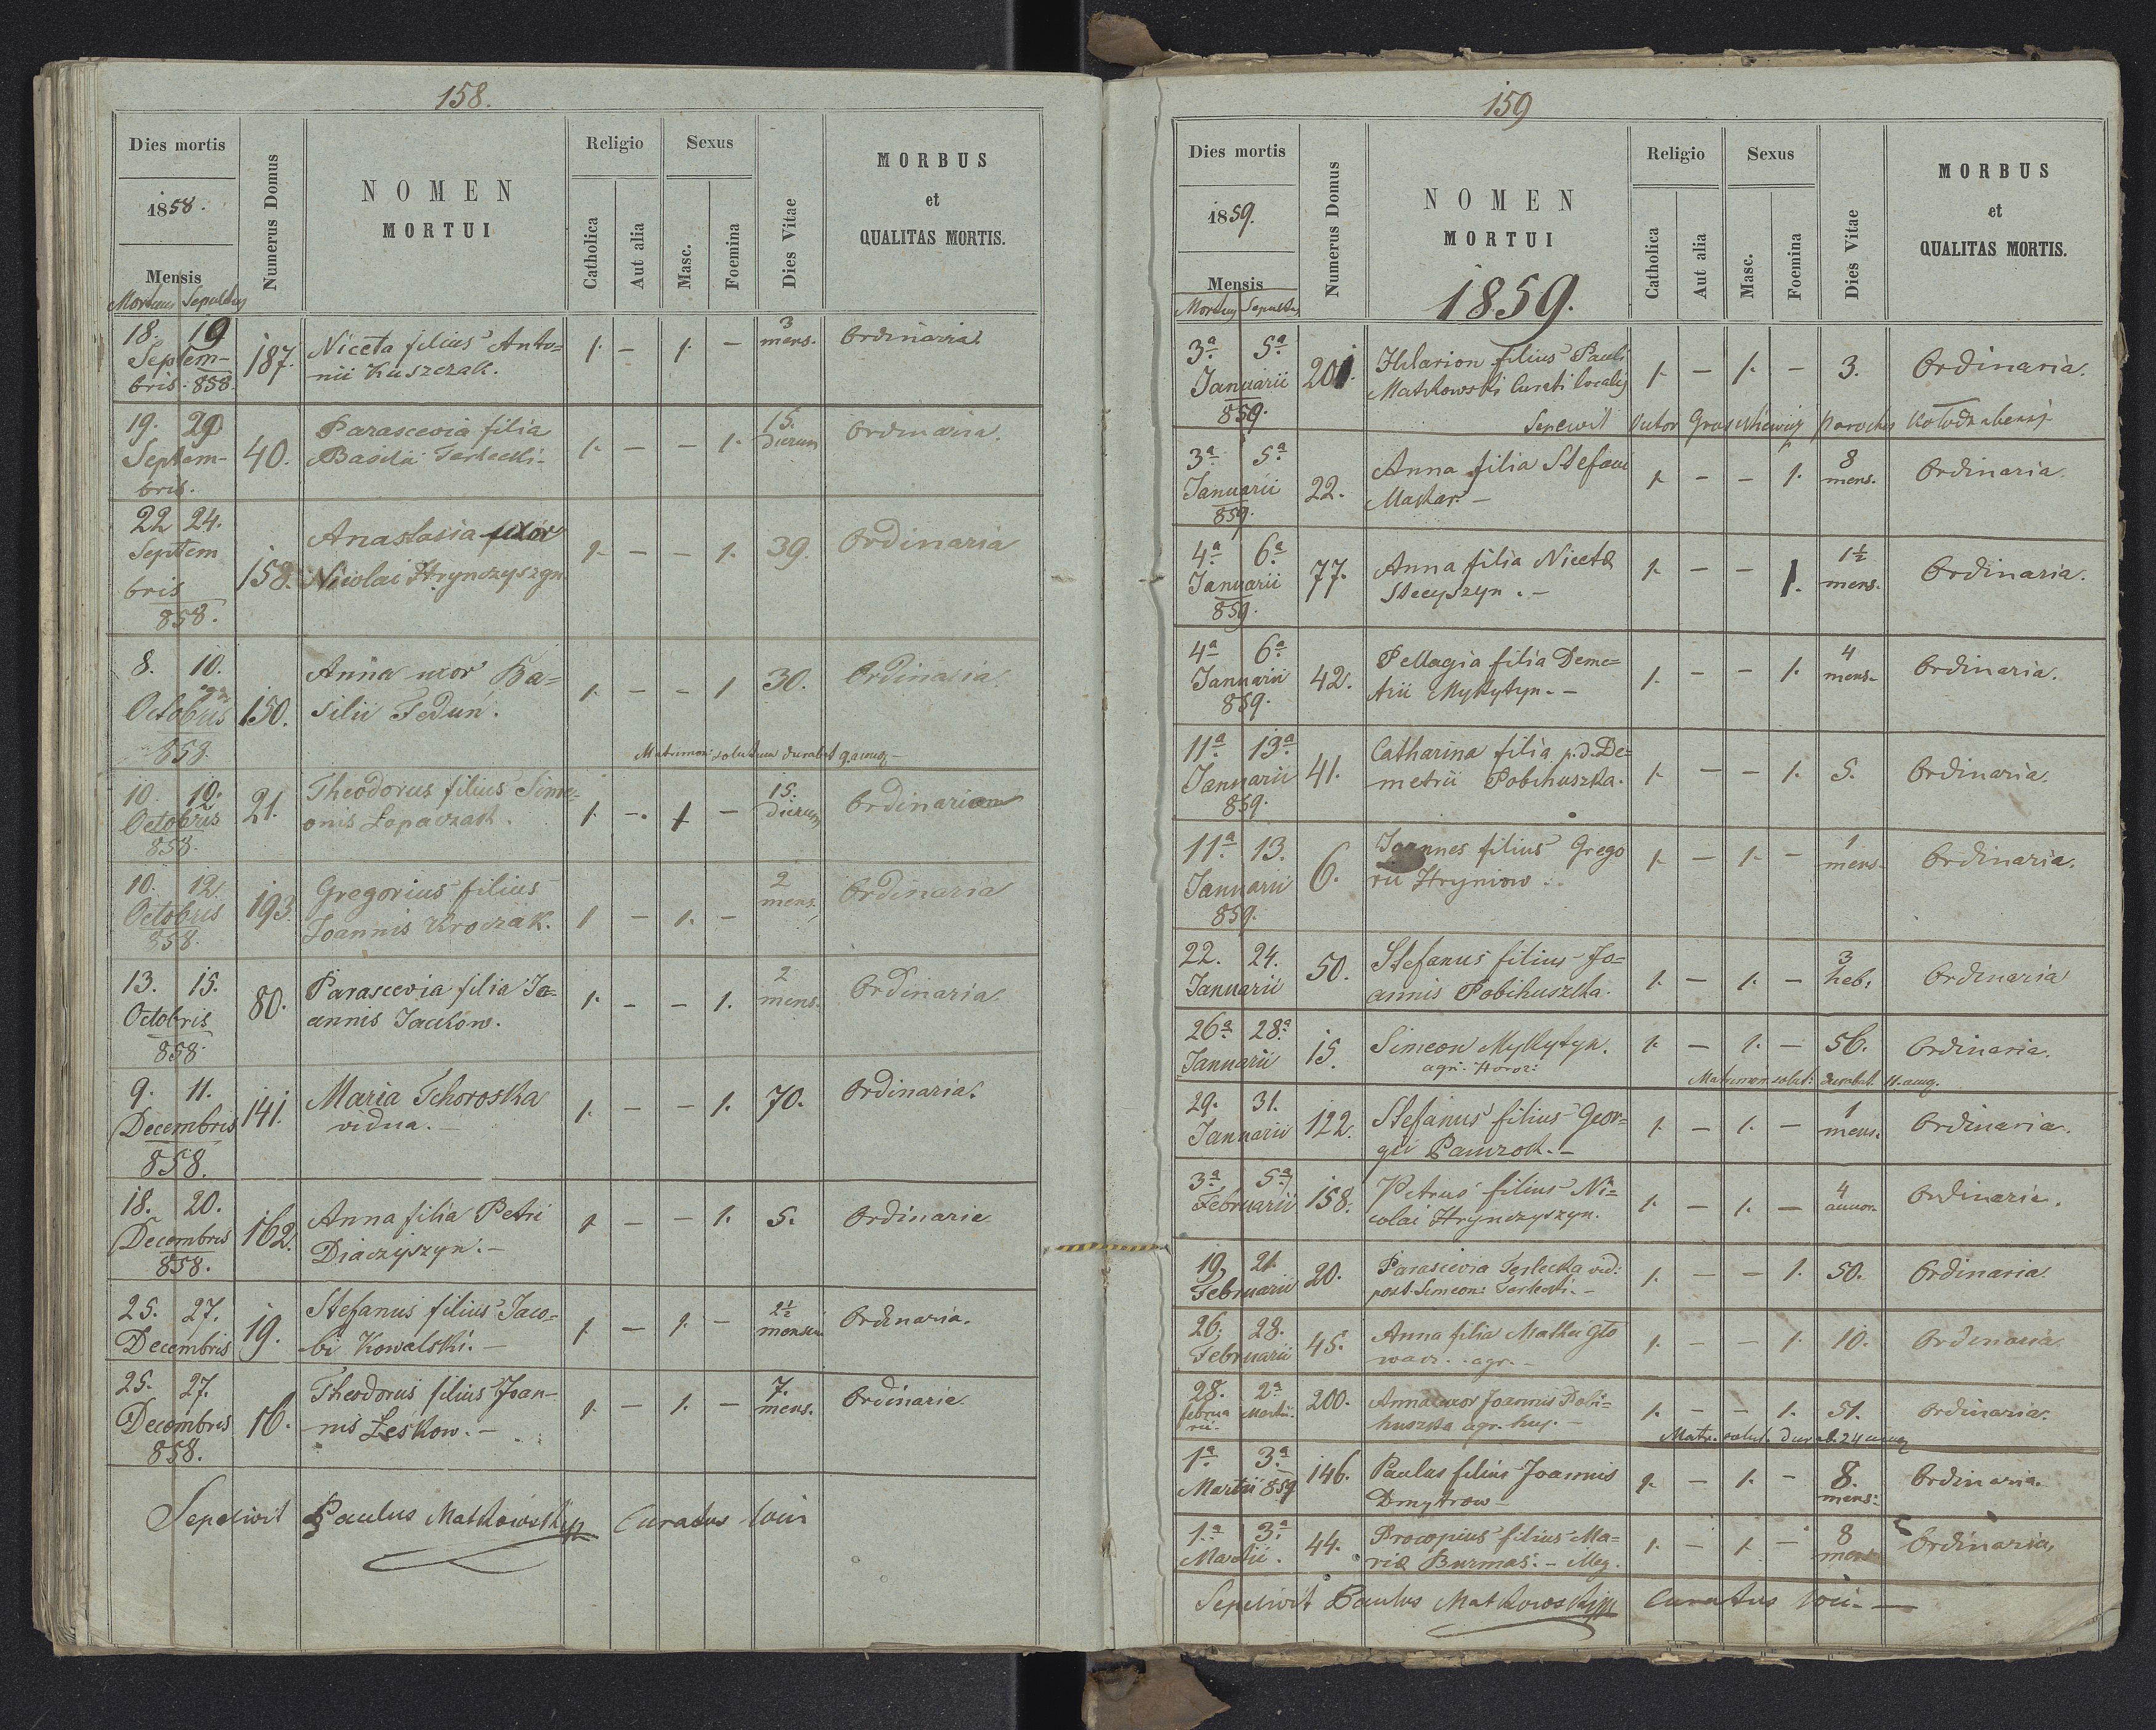 158.
Dies mortis
1858.
Mensis
Mortuus Sepultus
Numerus Domus
NOMEN
MORTUI
Religio
Catholica
Aut alia
Sexus
Masc.
Foemina
Dies Vitae
MORBUS
et
QUALITAS MORTIS.
18. 19 Septem- 187. Niceta filius Anto= 1. – 1. – 3 mens. Ordinaria.
bris. 858 nii Kuszczak.
19. 29 Septem- 40. Parascevia filia 1. – – 1. 15. dierum Ordinaria.
bris. Basilii Terlecki.
22 24. Septem 158. Anastasia uxor 1. – – 1. 39. Ordinaria
bris 858. Nicolai Hrynczyszyn
8. 10. Octobris 150. Anna uxor Ba= 1. – – 1 30. Ordinaria.
858. silii Fedun.
Matrimon: solutum durabat 9
10. 12. Octobris 21. Theodorus filius Sime- 1. – 1 – 15. dierum Ordinaria
858. onis Łopaczak.
10. 12. Octobris 193. Gregorius filius 1 – 1. – 2 mens. Ordinaria
858. Joannis Kroczak.
13. 15. Octobris 80. Parascevia filia Jo= 1. – – 1. 2 mens. Ordinaria
858. annis Jackow.
9. 11. Decembris 141. Maria Tchorostka 1. – – 1. 70. Ordinaria.
858. vidua. –
18. 20. Decembris 162. Anna filia Petri 1 – – 1. 5. Ordinaria
858. Diaczyszyn. –
25. 27. Decembris 19. Stefanus filius Jaco- 1 – 1. – 2½ mensiu Ordinaria.
bi Kowalski. –
25. 27. Decembris 16. Theodorus filius Joan- 1 – 1. – 7. mens. Ordinaria
858. nis Leskow. –
Sepelivit Paulus Matkowski Curatus loci
159
Dies mortis
1859.
Mensis
Mortuus Sepultus
Numerus Domus
NOMEN
MORTUI
1859.
Religio
Catholica
Aut alia
Sexus
Masc.
Foemina
Dies Vitae
MORBUS
et
QUALITAS MORTIS.
3a. 5a. Januarii 201. Hilarion filius Pauli 1. – 1. – 3. Ordinaria.
859. Matkowski Curati localis
Sepelivit Victor parochus
3a. 5a. Januarii 22. Anna filia Stefani 1. – – 1. 8 mens. Ordinaria.
859. Maskar –
4a. 6a. Januarii 77. Anna filia Nicetæ 1. – – 1. 1½ mens. Ordinaria.
859. Stecyszyn. –
4a 6a. Januarii 42. Pellagia filia Deme= 1. – – 1. 4 mens. Ordinaria.
859. trii Mykytyn. –
11a. 13a. Januarii 41. Catharina filia p.d. De= 1. – – 1. 5. Ordinaria.
859. metrii Pobihuszka.
11a. 13. Januarii 6. Joannes filius Grego 1. – 1. – 1 mens. Ordinaria.
859. rii Hryniow.
22. 24. Januarii 50. Stefanus filius Jo= 1. – 1. – 3 heb. Ordinaria
annis Pobihuszka.
26a. 28a. Januarii 15. Simeon Mykytyn. 1. – 1. – 56. Ordinaria.
agr: Horoz:
Matrimon. solut: durabat. 11.
29. 31. Januarii 122. Stefanus filius Geor= 1. – 1. – 1 mens. Ordinaria.
gii –
3a. 5a. Februarii 158. Petrus filius Ni= 1. – 1. – 4 annor. Ordinaria.
colai Hrynczyszyn.
19. 21. Februarii 20. Parascevia Terlecka vid: 1. – – 1. 50. Ordinaria
post Simeon: Terlecki. –
26. 28. Februarii 45. Anna filia Matthei Gło 1. – – 1. 10. Ordinaria
wacz. agr. –
28. februarii. 2a. Martii. 200. Anna uxor Joannis Pobi= 1. – – 1. 51. Ordinaria.
huszka agr. huj. –
Matr. solut. durab. 24
1a. 3a. Martii 859 146. Paulus filius Joannis 1. – 1. – 8. mens: Ordinaria.
Dmytrow –
1.a 3.a Martii. 44. Procopius filius Ma= 1. – 1. – 8 mens Ordinaria,
riæ Burmas. –
Sepelivit Paulus Matkowski Curatus loci –